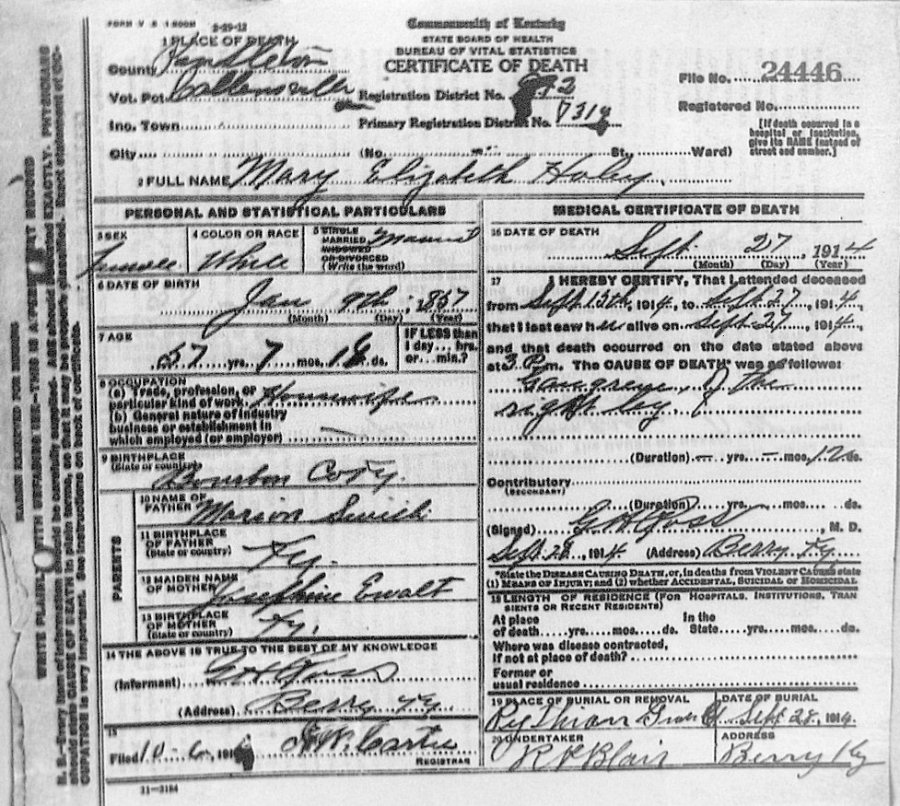 FORM V S 1 500M 2-29-12
Commonwealth of Kentucky
STATE BOARD OF HEALTH
BUREAU OF VITAL STATISTICS
CERTIFICATE OF DEATH
1 PLACE OF DEATH
County Pendleton
File No. 24446
Vot. Pct
Registration District No.
Registered No.
Inc. Town
Primary Registration District No.
[If death occurred in a hospital or institution, give its NAME instead of street and number.]
City (No. St. Ward)
2 FULL NAME Mary Elizabeth Haley
PERSONAL AND STATISTICAL PARTICULARS
3 SEX
4 COLOR OR RACE White
5 SINGLE MARRIED WIDOWED OR DIVORCED (Write the word) Married
6 DATE OF BIRTH
Jan 9th, 1857
(Month) (Day) (Year)
7 AGE
57 yrs. 7 mos. 18 ds.
IF LESS than 1 day... hrs. or... min.?
8 OCCUPATION
(a) Trade, profession, or particular kind of work Housewife
(b) General nature of industry business or establishment in which employed (or employer)
9 BIRTHPLACE
(State or country) Bourbon Co Ky.
PARENTS
10 NAME OF FATHER Marion
11 BIRTHPLACE OF FATHER
(State or country) Ky.
12 MAIDEN NAME OF MOTHER Josephine Ewalt
13 BIRTHPLACE OF MOTHER
(State or country) Ky.
14 THE ABOVE IS TRUE TO THE BEST OF MY KNOWLEDGE
(Informant)
(Address) Berry Ky
15
Filed 10-6, 1914 Carter
REGISTRAR
11-3184
MEDICAL CERTIFICATE OF DEATH
16 DATE OF DEATH
Sept. 27, 1914
(Month) (Day) (Year)
17 I HEREBY CERTIFY, That I attended deceased
from Sept 15th, 1914, to Sept 27, 1914,
that I last saw her alive on Sept 27, 1914,
and that death occurred on the date stated above
at 3 P. m. The CAUSE OF DEATH* was as follows:
Gangrene, of the
right leg.
(Duration) — yrs. — mos. 12 ds.
Contributory
(SECONDARY)
(Duration) yrs. mos. ds.
(Signed) , M. D.
Sept. 28, 1914 (Address) Berry Ky
*State the DISEASE CAUSING DEATH, or, in deaths from VIOLENT CAUSES state
(1) MEANS OF INJURY; and (2) whether ACCIDENTAL, SUICIDAL or HOMICIDAL
18 LENGTH OF RESIDENCE (FOR HOSPITALS, INSTITUTIONS, TRANSIENTS OR RECENT RESIDENTS)
At place of death yrs. mos. ds. In the State yrs. mos. ds.
Where was disease contracted,
If not at place of death?
Former or
usual residence
19 PLACE OF BURIAL OR REMOVAL
DATE OF BURIAL
Sept 28, 1914
20 UNDERTAKER
Blair
ADDRESS
Berry Ky
MARGIN RESERVED FOR BINDING